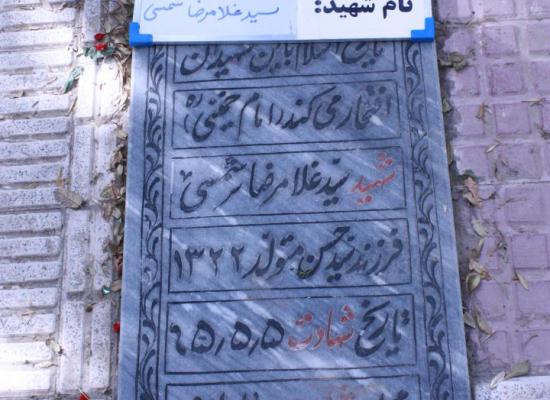 نام شهید:
سید غلامرضا شمسی
افتخار می کند (امام خمینی ره)
شهید سید غلامرضا شمسی
فرزند سید حسن متولد ۱۳۲۲
تاریخ شهادت ۶۵٫۵٫۵